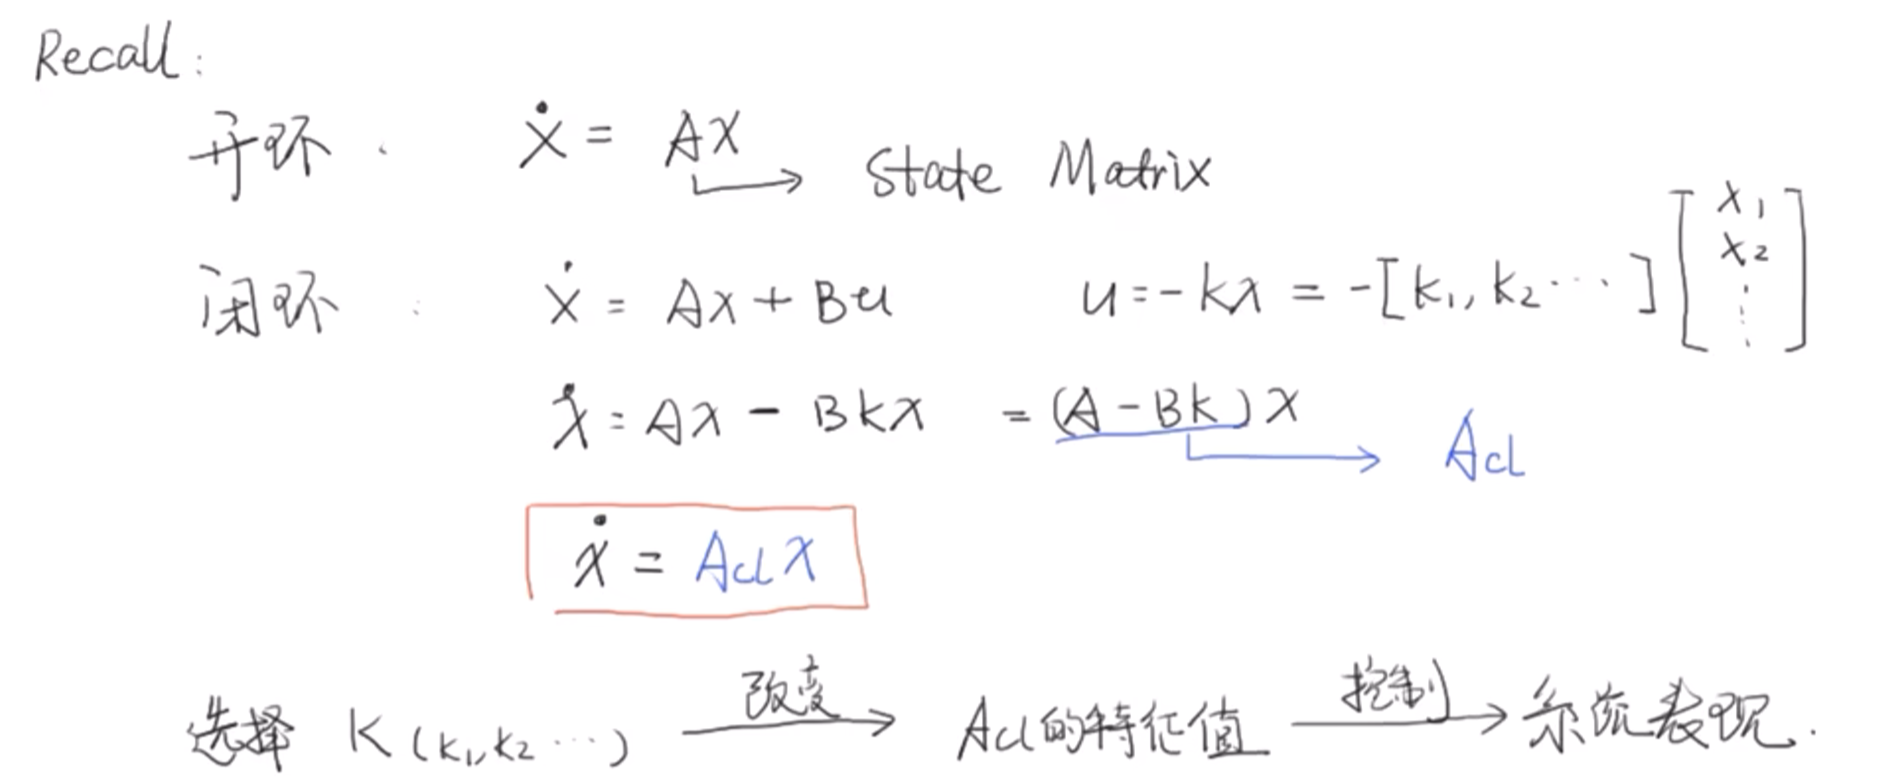 Recall:
开环: ẋ = Ax
→ State Matrix
闭环: ẋ = Ax + Bu u = -kx = -[k₁, k₂ ⋯] [x₁ x₂ ⋮]
ẋ = Ax - Bkx = (A - Bk)x
→ Acl
ẋ = Acl x
选择 K(k₁,k₂ ⋯) 改变→ Acl的特征值 控制→ 系统表现.